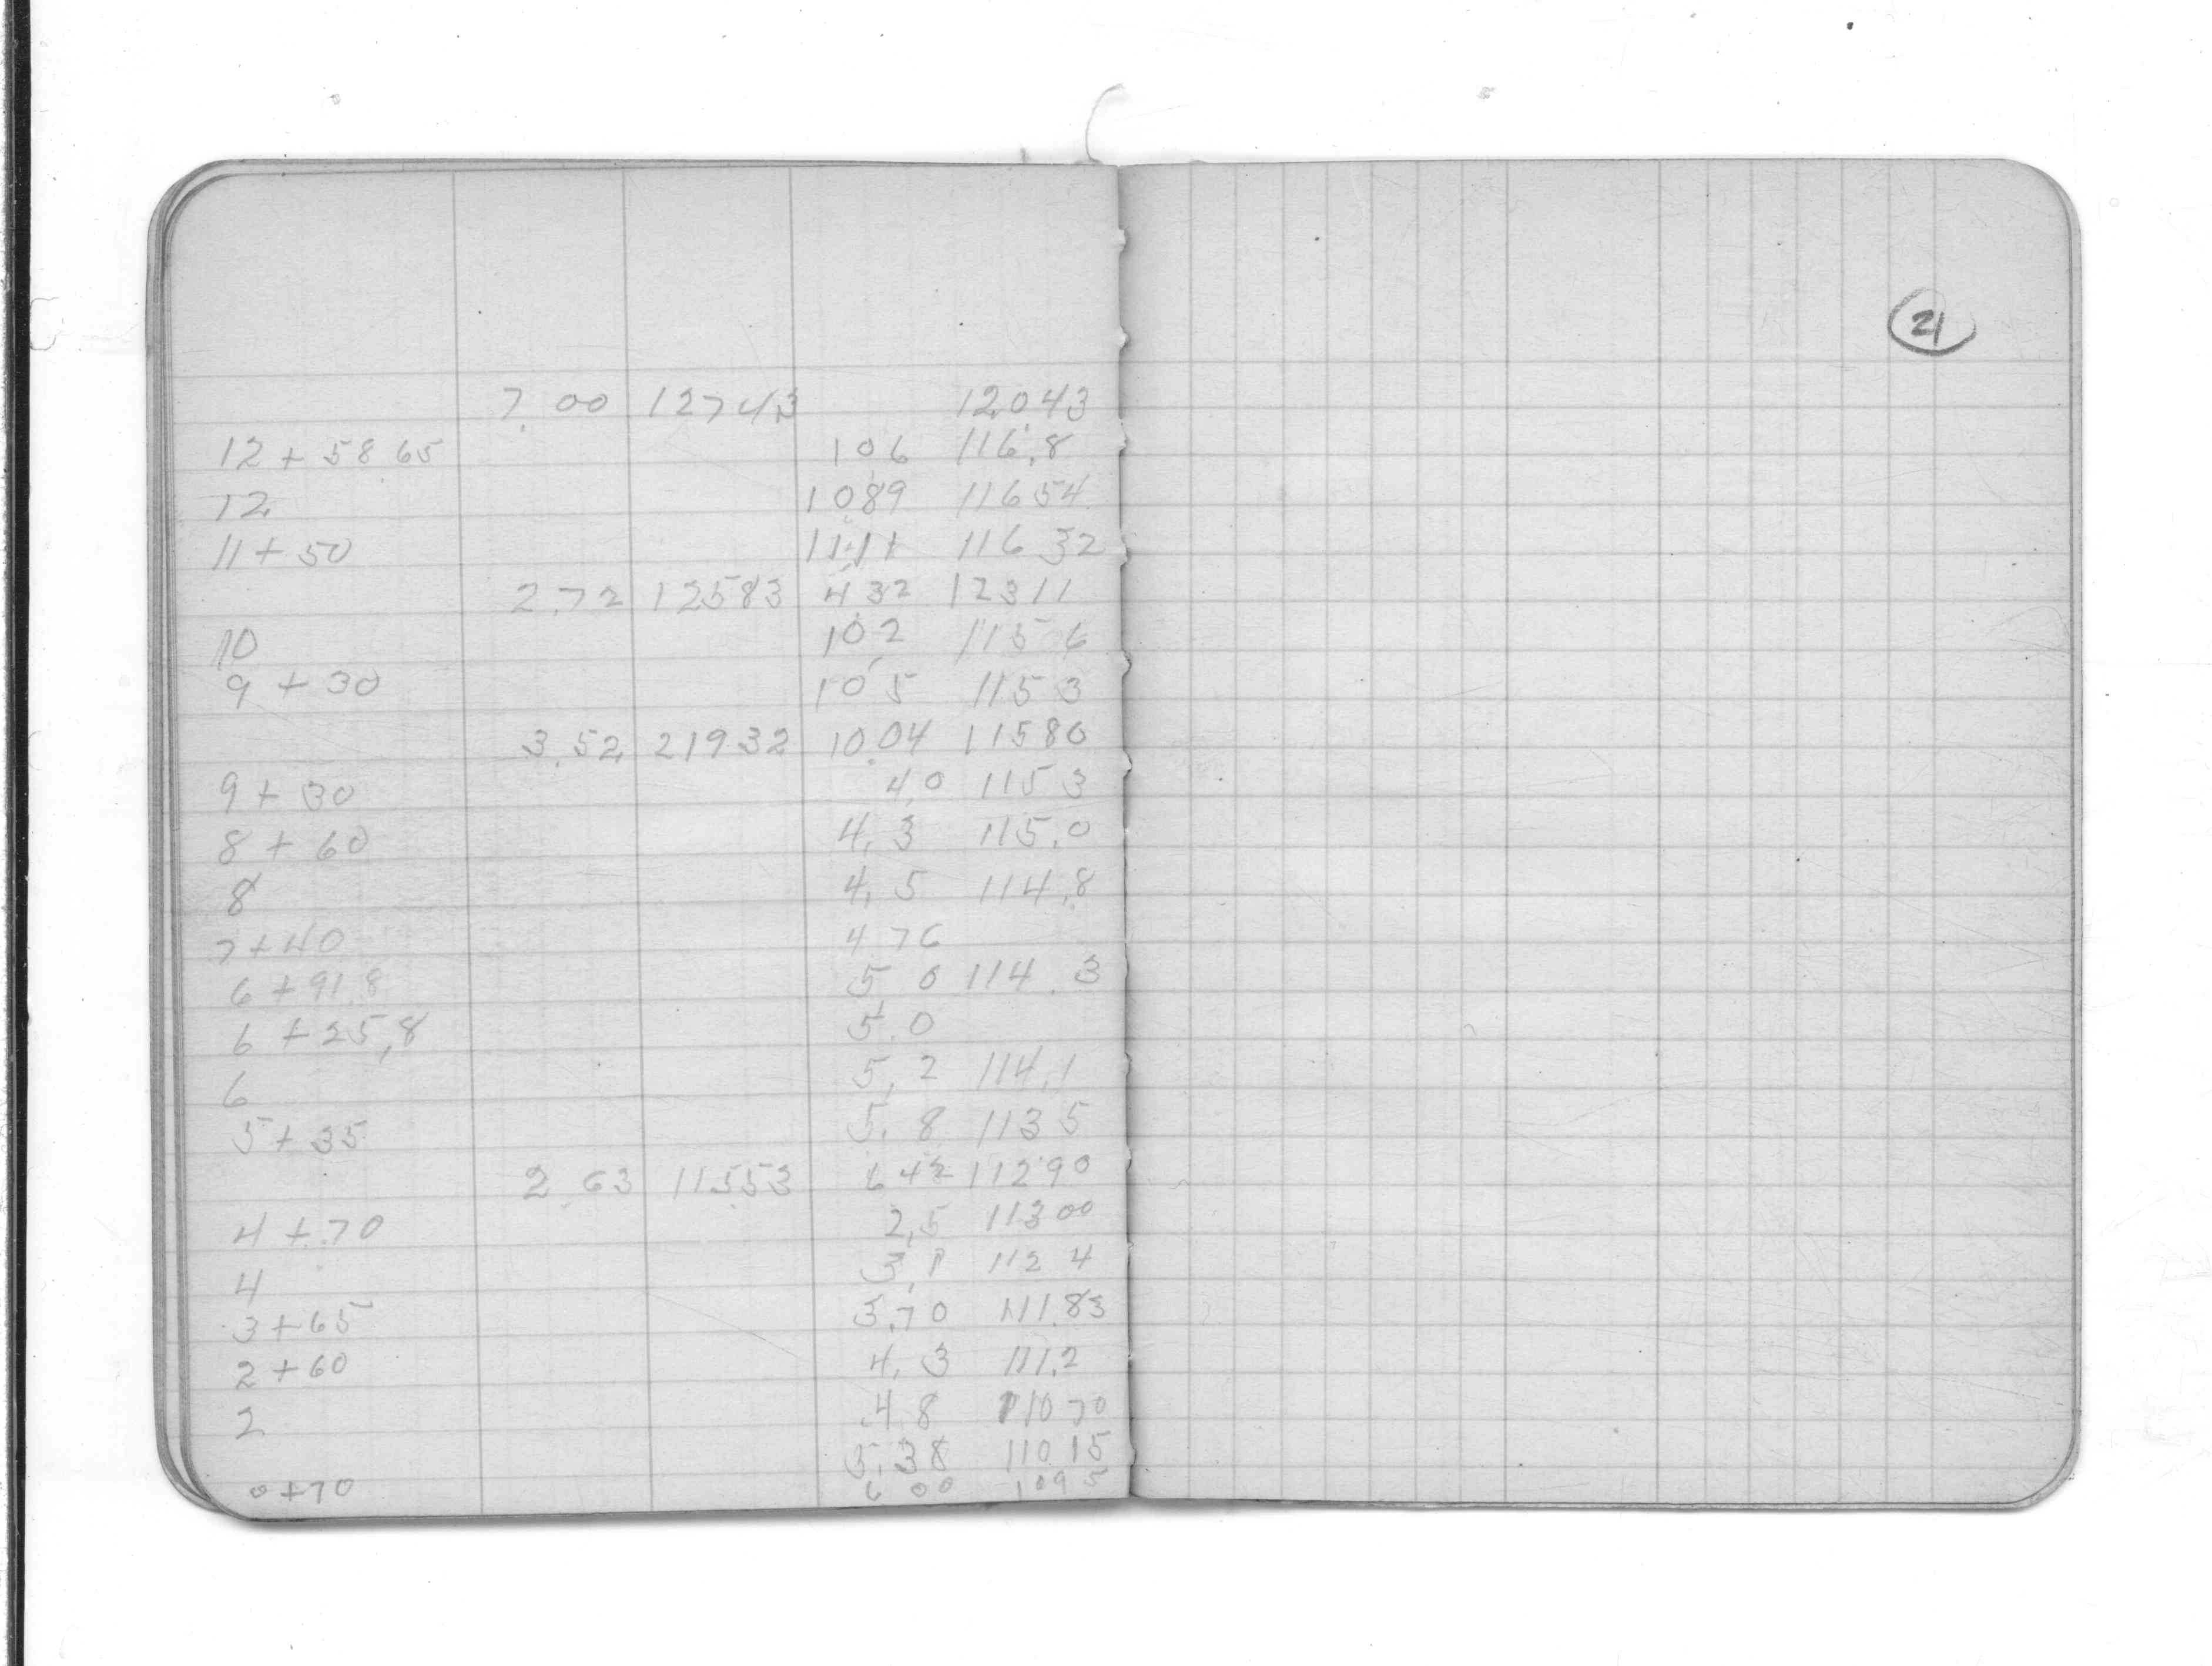 21
7.00 12743 12.043
12 + 58 65 106 116.8
12 1089 11654
11 + 50 1111 116 32
2.72 12583 432 12311
10 102 115 6
9 + 30 105 115 3
3.52 21932 10.04 11580
9 + 30 4.0 115 3
8 + 60 4.3 115.0
8 4.5 114.8
7 + 40 4 76
6 + 91.8 5 0 114.3
6 + 25.8 5.0
6 5.2 114.1
5 + 35 5.8 113 5
2.63 11553 6 42 11290
4 + 70 2.5 113 00
4 3.1 112 4
3 + 65 3.70 111.83
2 + 60 4.3 111.2
2 4.8 110 70
5.38 110 15
0 + 70 6 00 109 5